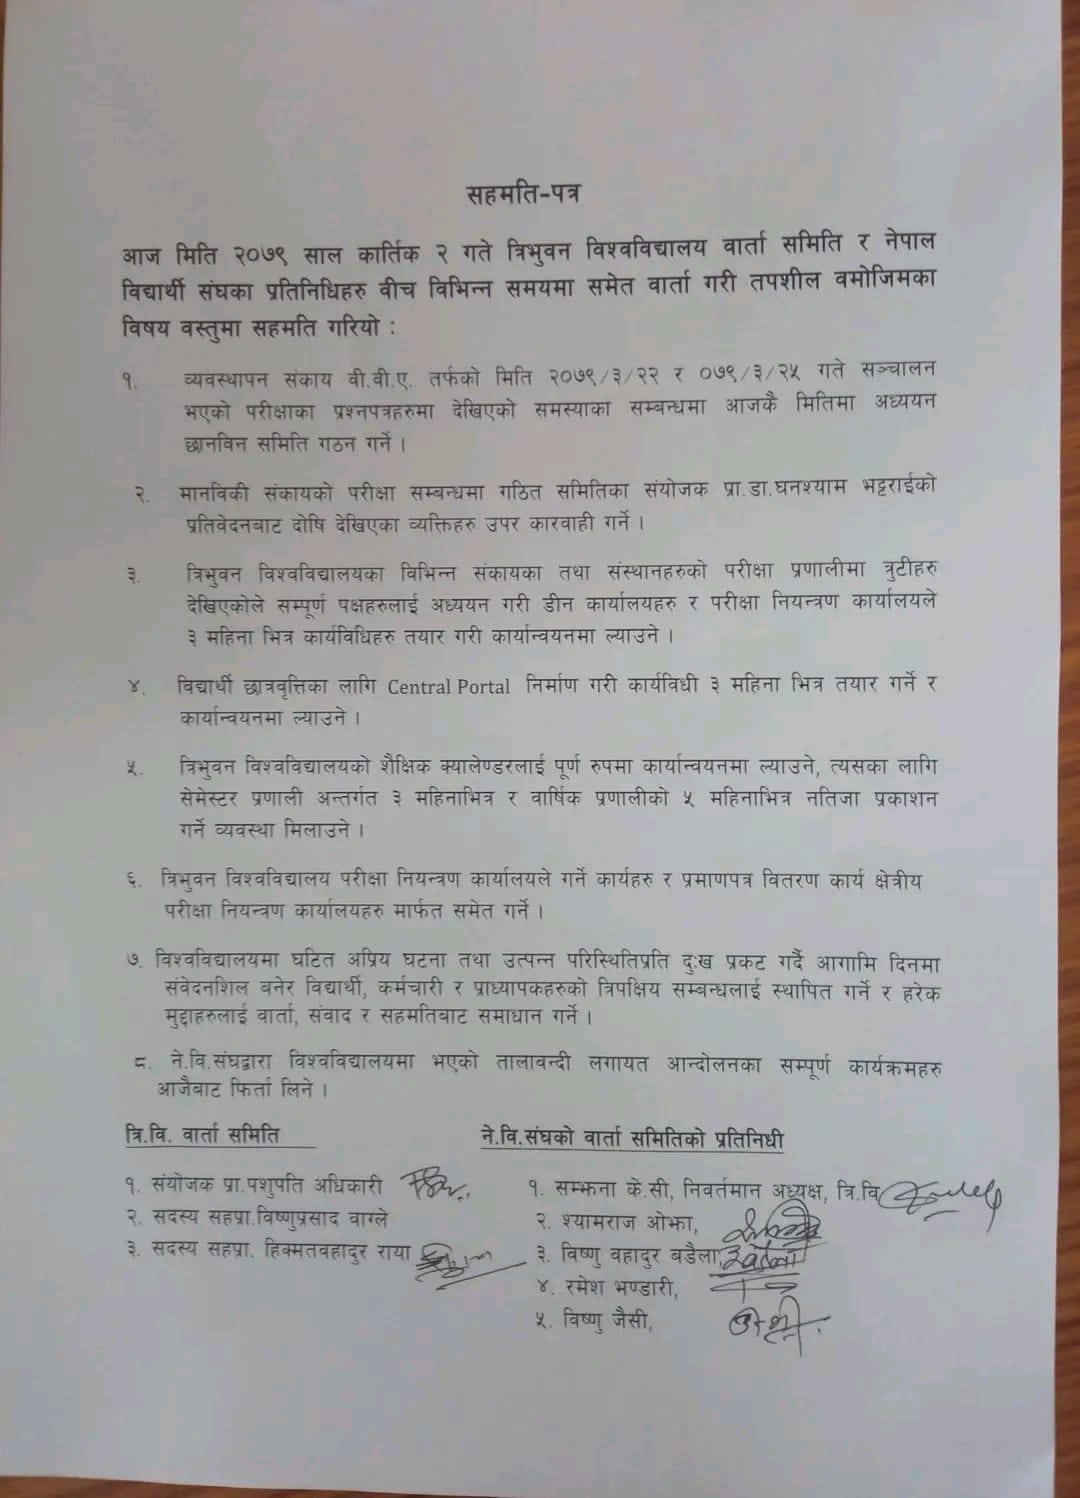 सहमति-पत्र
आज मिति २०७९ साल कार्तिक २ गते त्रिभुवन विश्वविद्यालय वार्ता समिति र नेपाल
विद्यार्थी संघका प्रतिनिधिहरु वीच विभिन्न समयमा समेत वार्ता गरी तपशील वमोजिमका
विषय वस्तुमा सहमति गरियो :
१. व्यवस्थापन संकाय वी.वी.ए. तर्फको मिति २०७९/३/२२ र ०७९/३/२५ गते सञ्चालन
भएको परीक्षाका प्रश्नपत्रहरुमा देखिएको समस्याका सम्बन्धमा आजकै मितिमा अध्ययन
छानविन समिति गठन गर्ने ।
२. मानविकी संकायको परीक्षा सम्बन्धमा गठित समितिका संयोजक प्रा.डा.घनश्याम भट्टराईको
प्रतिवेदनबाट दोषि देखिएका व्यक्तिहरु उपर कारवाही गर्ने ।
३. त्रिभुवन विश्वविद्यालयका विभिन्न संकायका तथा संस्थानहरुको परीक्षा प्रणालीमा त्रुटीहरु
देखिएकोले सम्पूर्ण पक्षहरुलाई अध्ययन गरी डीन कार्यालयहरु र परीक्षा नियन्त्रण कार्यालयले
३ महिना भित्र कार्यविधिहरु तयार गरी कार्यान्वयनमा ल्याउने ।
४. विद्यार्थी छात्रवृत्तिका लागि Central Portal निर्माण गरी कार्यविधी ३ महिना भित्र तयार गर्ने र
कार्यान्वयनमा ल्याउने ।
५. त्रिभुवन विश्वविद्यालयको शैक्षिक क्यालेण्डरलाई पूर्ण रुपमा कार्यान्वयनमा ल्याउने, त्यसका लागि
सेमेस्टर प्रणाली अन्तर्गत ३ महिनाभित्र र वार्षिक प्रणालीको ५ महिनाभित्र नतिजा प्रकाशन
गर्ने व्यवस्था मिलाउने ।
६. त्रिभुवन विश्वविद्यालय परीक्षा नियन्त्रण कार्यालयले गर्ने कार्यहरु र प्रमाणपत्र वितरण कार्य क्षेत्रीय
परीक्षा नियन्त्रण कार्यालयहरु मार्फत समेत गर्ने ।
७. विश्वविद्यालयमा घटित अप्रिय घटना तथा उत्पन्न परिस्थितिप्रति दुःख प्रकट गर्दै आगामि दिनमा
संवेदनशिल बनेर विद्यार्थी, कर्मचारी र प्राध्यापकहरुको त्रिपक्षिय सम्बन्धलाई स्थापित गर्ने र हरेक
मुद्दाहरुलाई वार्ता, संवाद र सहमतिबाट समाधान गर्ने ।
८. ने.वि.संघद्वारा विश्वविद्यालयमा भएको तालावन्दी लगायत आन्दोलनका सम्पूर्ण कार्यक्रमहरु
आजैबाट फिर्ता लिने ।
त्रि.वि. वार्ता समिति
१. संयोजक प्रा.पशुपति अधिकारी
२. सदस्य सहप्रा.विष्णुप्रसाद वाग्ले
३. सदस्य सहप्रा. हिक्मतवहादुर राया
ने.वि.संघको वार्ता समितिको प्रतिनिधी
१. सम्झना के.सी, निवर्तमान अध्यक्ष, त्रि.वि
२. श्यामराज ओझा,
३. विष्णु वहादुर बडैला,
४. रमेश भण्डारी,
५. विष्णु जैसी,